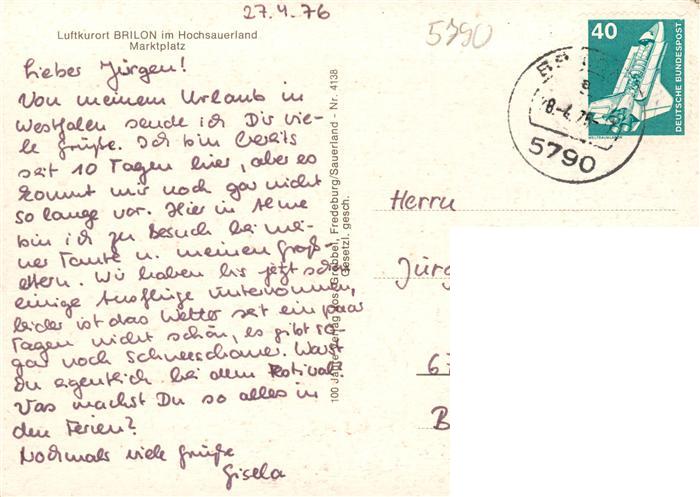 27.4.76
5790
Luftkurort BRILON im Hochsauerland
Marktplatz
Lieber Jürgen!
Von meinem Urlaub in
Westfalen sende ich Dir vie-
le Grüße. Ich bin bereits
seit 10 Tagen hier, aber es
kommt mir noch gar nicht
so lange vor. Hier in Alme
bin ich zu Besuch bei mei-
ner Tante u. meinen Groß-
eltern. Wir haben bis jetzt schon
einige Ausflüge unternommen,
leider ist das Wetter seit ein paar
Tagen nicht schön, es gibt so-
gar noch Schneeschauer. Warst
Du eigentlich bei dem Festival?
Was machst Du so alles in
den Ferien?
Nochmals viele Grüße
Gisela
100 Jahre Verlag Jos. Grobbel, Fredeburg/Sauerland - Nr. 4138
Gesetzl. gesch.
40
DEUTSCHE BUNDESPOST
5790
Herrn
Jürg
67
B